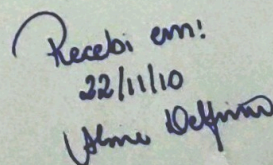 Recebi em:
22/11/10
Delfino